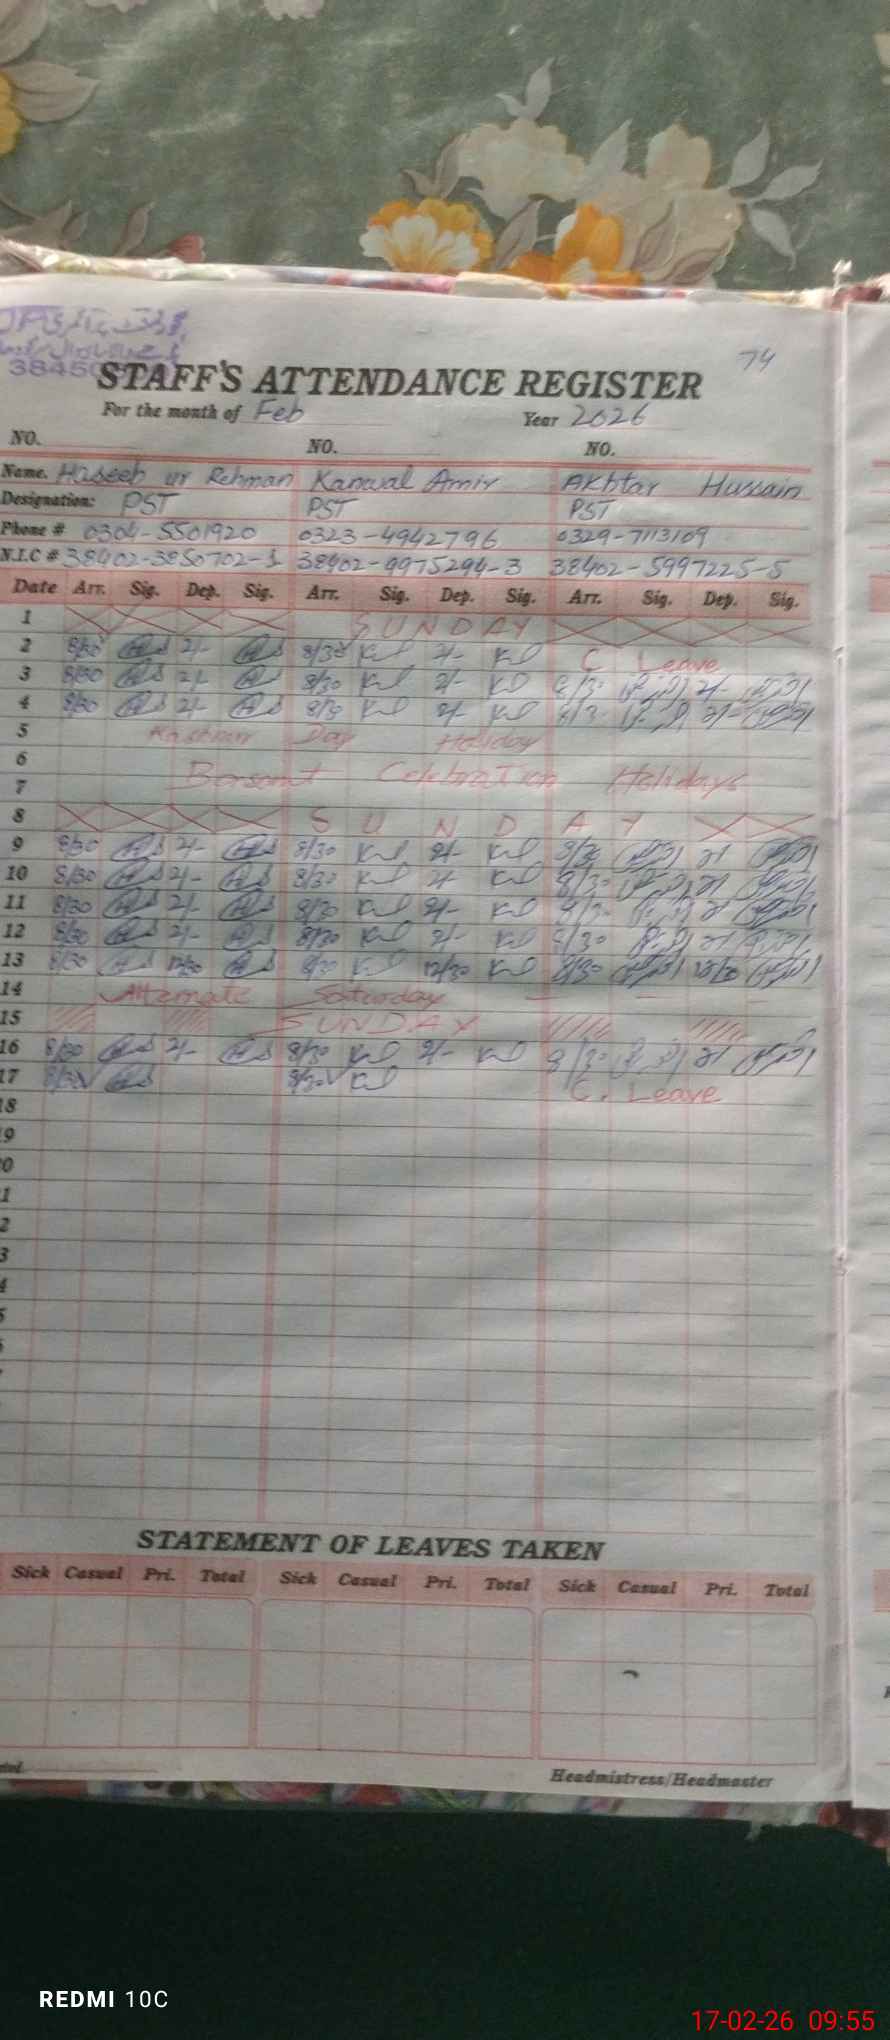 74
3845
STAFF'S ATTENDANCE REGISTER
For the month of Feb Year 2026
NO. NO. NO.
Name. Haseeb ur Rehman Kanwal Amir Akhtar Hussain
Designation: PST PST PST
Phone # 0304-5501920 0323-4942796 0329-7113109
N.I.C # 38402-3850702-1 38402-9975294-3 38402-5997225-5
Date Arr. Sig. Dep. Sig. Arr. Sig. Dep. Sig. Arr. Sig. Dep. Sig.
1 SUNDAY
2 8/30 2/- 8/30 2/- C Leave
3 8/30 2/- 8/30 2/- 8/30 2/-
4 8/30 2/- 8/30 2/- 8/30 2/-
5 Kashmir Day Holiday
6
7 Bansant Celebration Holidays
8 SUNDAY
9 8/30 2/- 8/30 2/- 8/30 2/
10 8/30 2/- 8/30 2/- 8/30 2/
11 8/30 2/- 8/30 2/- 8/30 2/
12 8/30 2/- 8/30 2/- 8/30 2/
13 8/30 12/30 8/30 12/30 8/30 12/30
14 Alternate Saturday
15 SUNDAY
16 8/30 2/- 8/30 2/- 8/30 2/
17 8/30 8/30 C. Leave
18
19
0
1
2
3
4
5
STATEMENT OF LEAVES TAKEN
Sick Casual Pri. Total Sick Casual Pri. Total Sick Casual Pri. Total
Headmistress/Headmaster
REDMI 10C
17-02-26 09:55